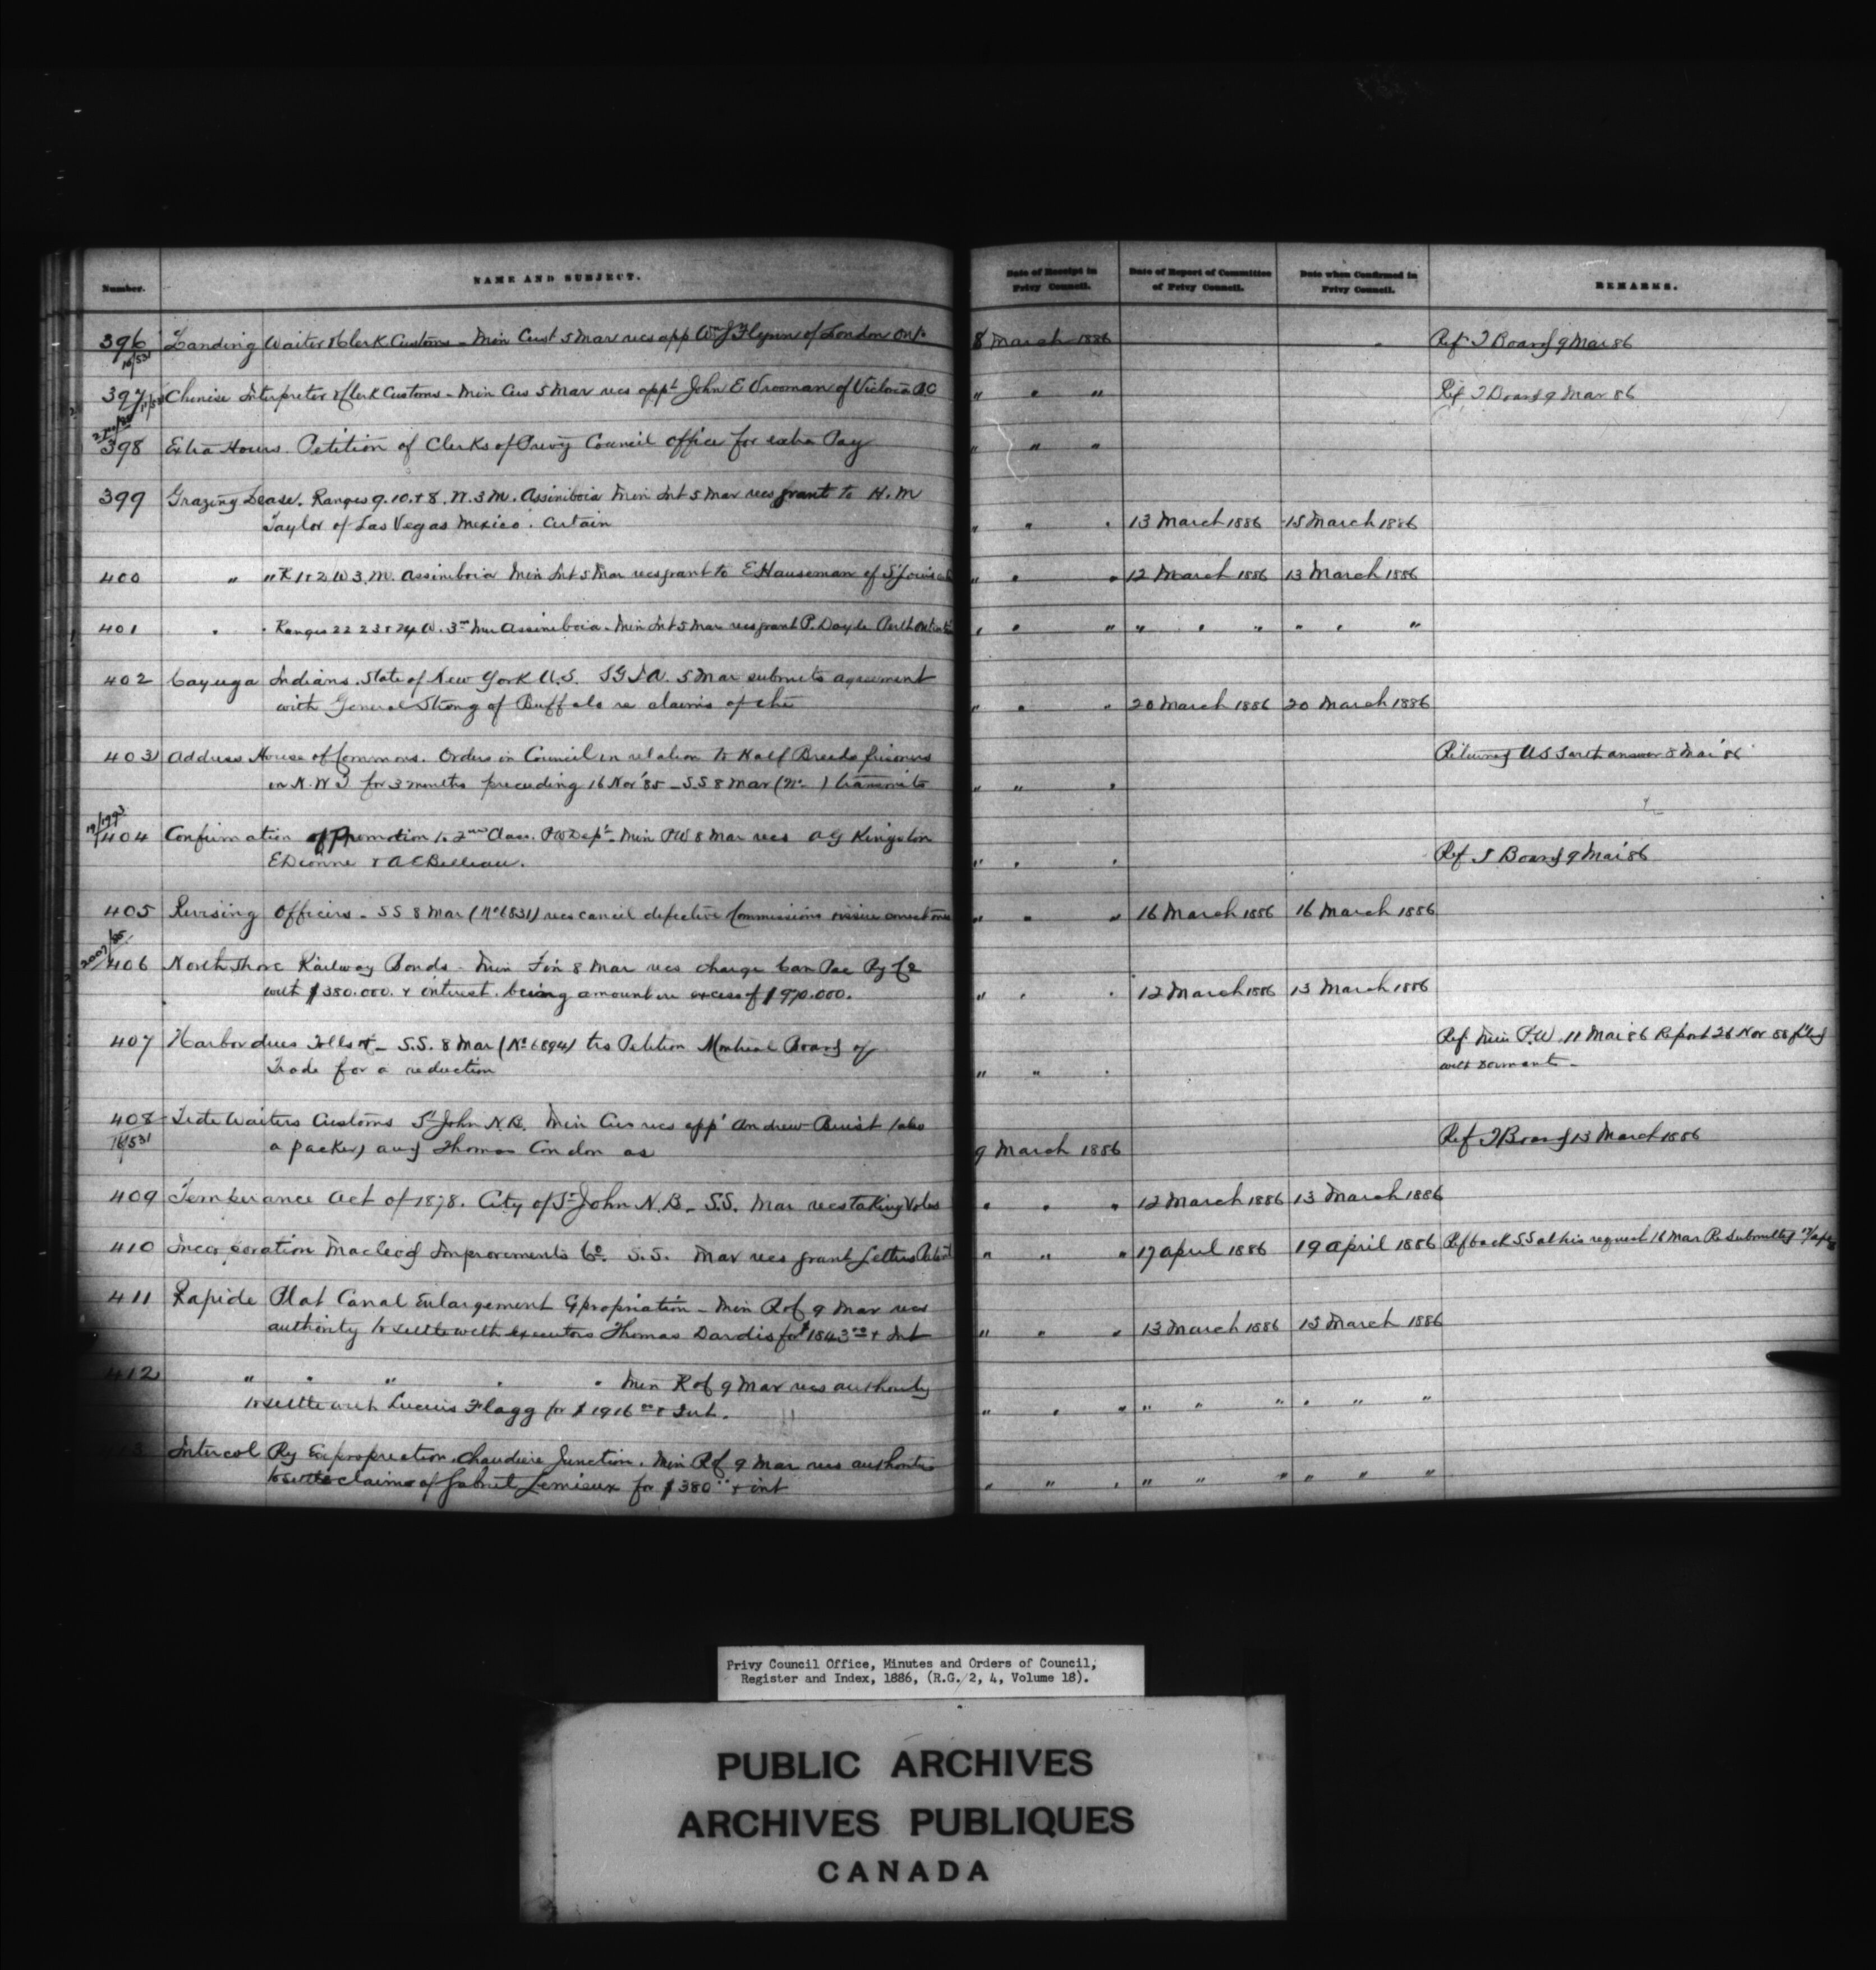 Number. NAME AND SUBJECT. Date of Receipt in Privy Council. Date of Report of Committee of Privy Council. Date when Confirmed in Privy Council. REMARKS.
396 Landing Waiter & Clerk Customs - Min Cust 5 Mar recs app Wm J Flynn of London Ont 8 March 1886 Ref T Board 9 Mar 86
10/531
397 Chinese Interpreter & Clerk Customs - Min Cus 5 Mar recs appt John E Vrooman of Victoria BC " " " Ref T Board 9 Mar 86
398 Extra Hours. Petition of Clerks of Privy Council Office for extra Pay " " "
399 Grazing Lease. Ranges 9. 10. & 8. W. 3 M. Assiniboia Min Int 5 Mar recs grant to H. M
Taylor of Las Vegas Mexico. Certain " " " 13 March 1886 15 March 1886
400 " " R 1 & 2 W 3. M. Assiniboia Min Int 5 Mar recs grant to E Hauseman of St Louis " " " 12 March 1886 13 March 1886
401 " " Ranges 22 23 & 24 W. 3rd Mer Assiniboia - Min Int 5 Mar recs grant P. Doyle Perth " " " " " " " " "
402 Cayuga Indians. State of New York U.S. SGIA. 5 Mar submits agreement
with General Strong of Buffalo re claims of the " " " 20 March 1886 20 March 1886
403 Address House of Commons. Orders in Council in relation to Half Breeds prisoners Returned U S S with answer 8 Mar '86
in N. W T for 3 months preceding 16 Nov '85 - S.S 8 Mar (No ) transmits " " "
19/1993
404 Confirmation of Promotion to 2nd Class. PW Dept - Min PW 8 Mar recs A G Kingston
E Dionne & A C Belleau. " " " Ref T Board 9 Mar '86
405 Revising Officers - SS 8 Mar (No 6831) recs cancel defective Commissions " " " 16 March 1886 16 March 1886
2007/85
406 North Shore Railway Bonds - Min Fin 8 Mar recs charge Can Pac Ry Co
with $380.000. & interest. being amount in excess of $970.000. " " " 12 March 1886 13 March 1886
407 Harbor dues Tolls &c - S.S. 8 Mar (No 6894) trs Petition Montreal Board of Ref Min P.W. 11 Mar 86 Report 26 Nov 88 filed
Trade for a reduction " " " with dormants -
408 Tide Waiters Customs St John N.B. Min Cus recs app Andrew Buist (also
16/531 a packer) and Thomas Condon as 9 March 1886 Ref T Board 13 March 1886
409 Temperance Act of 1878. City of St John N.B. - S.S. Mar recs taking Votes " " " 12 March 1886 13 March 1886
410 Incorporation Macleod Improvements Co. S.S. Mar recs grant Letters Patent " " " 17 April 1886 19 April 1886 Ref back S.S at his request 16 Mar Re Submitted
411 Rapide Plat Canal Enlargement Expropriation - Min R of 9 Mar recs
authority to settle with executors Thomas Dardis for $1843.00 & Int " " " 13 March 1886 15 March 1886
412 " " " " " Min R of 9 Mar recs authority
to settle with Lucius Flagg for $1916.00 & Int. " " " " " " " " "
Intercol Ry Expropriation. Chaudiere Junction. Min R of 9 Mar recs authority
to settle claims of Gabriel Lemieux for $380.. & int " " " " " " " " "
Privy Council Office, Minutes and Orders of Council,
Register and Index, 1886, (R.G. 2, 4, Volume 18).
PUBLIC ARCHIVES
ARCHIVES PUBLIQUES
CANADA